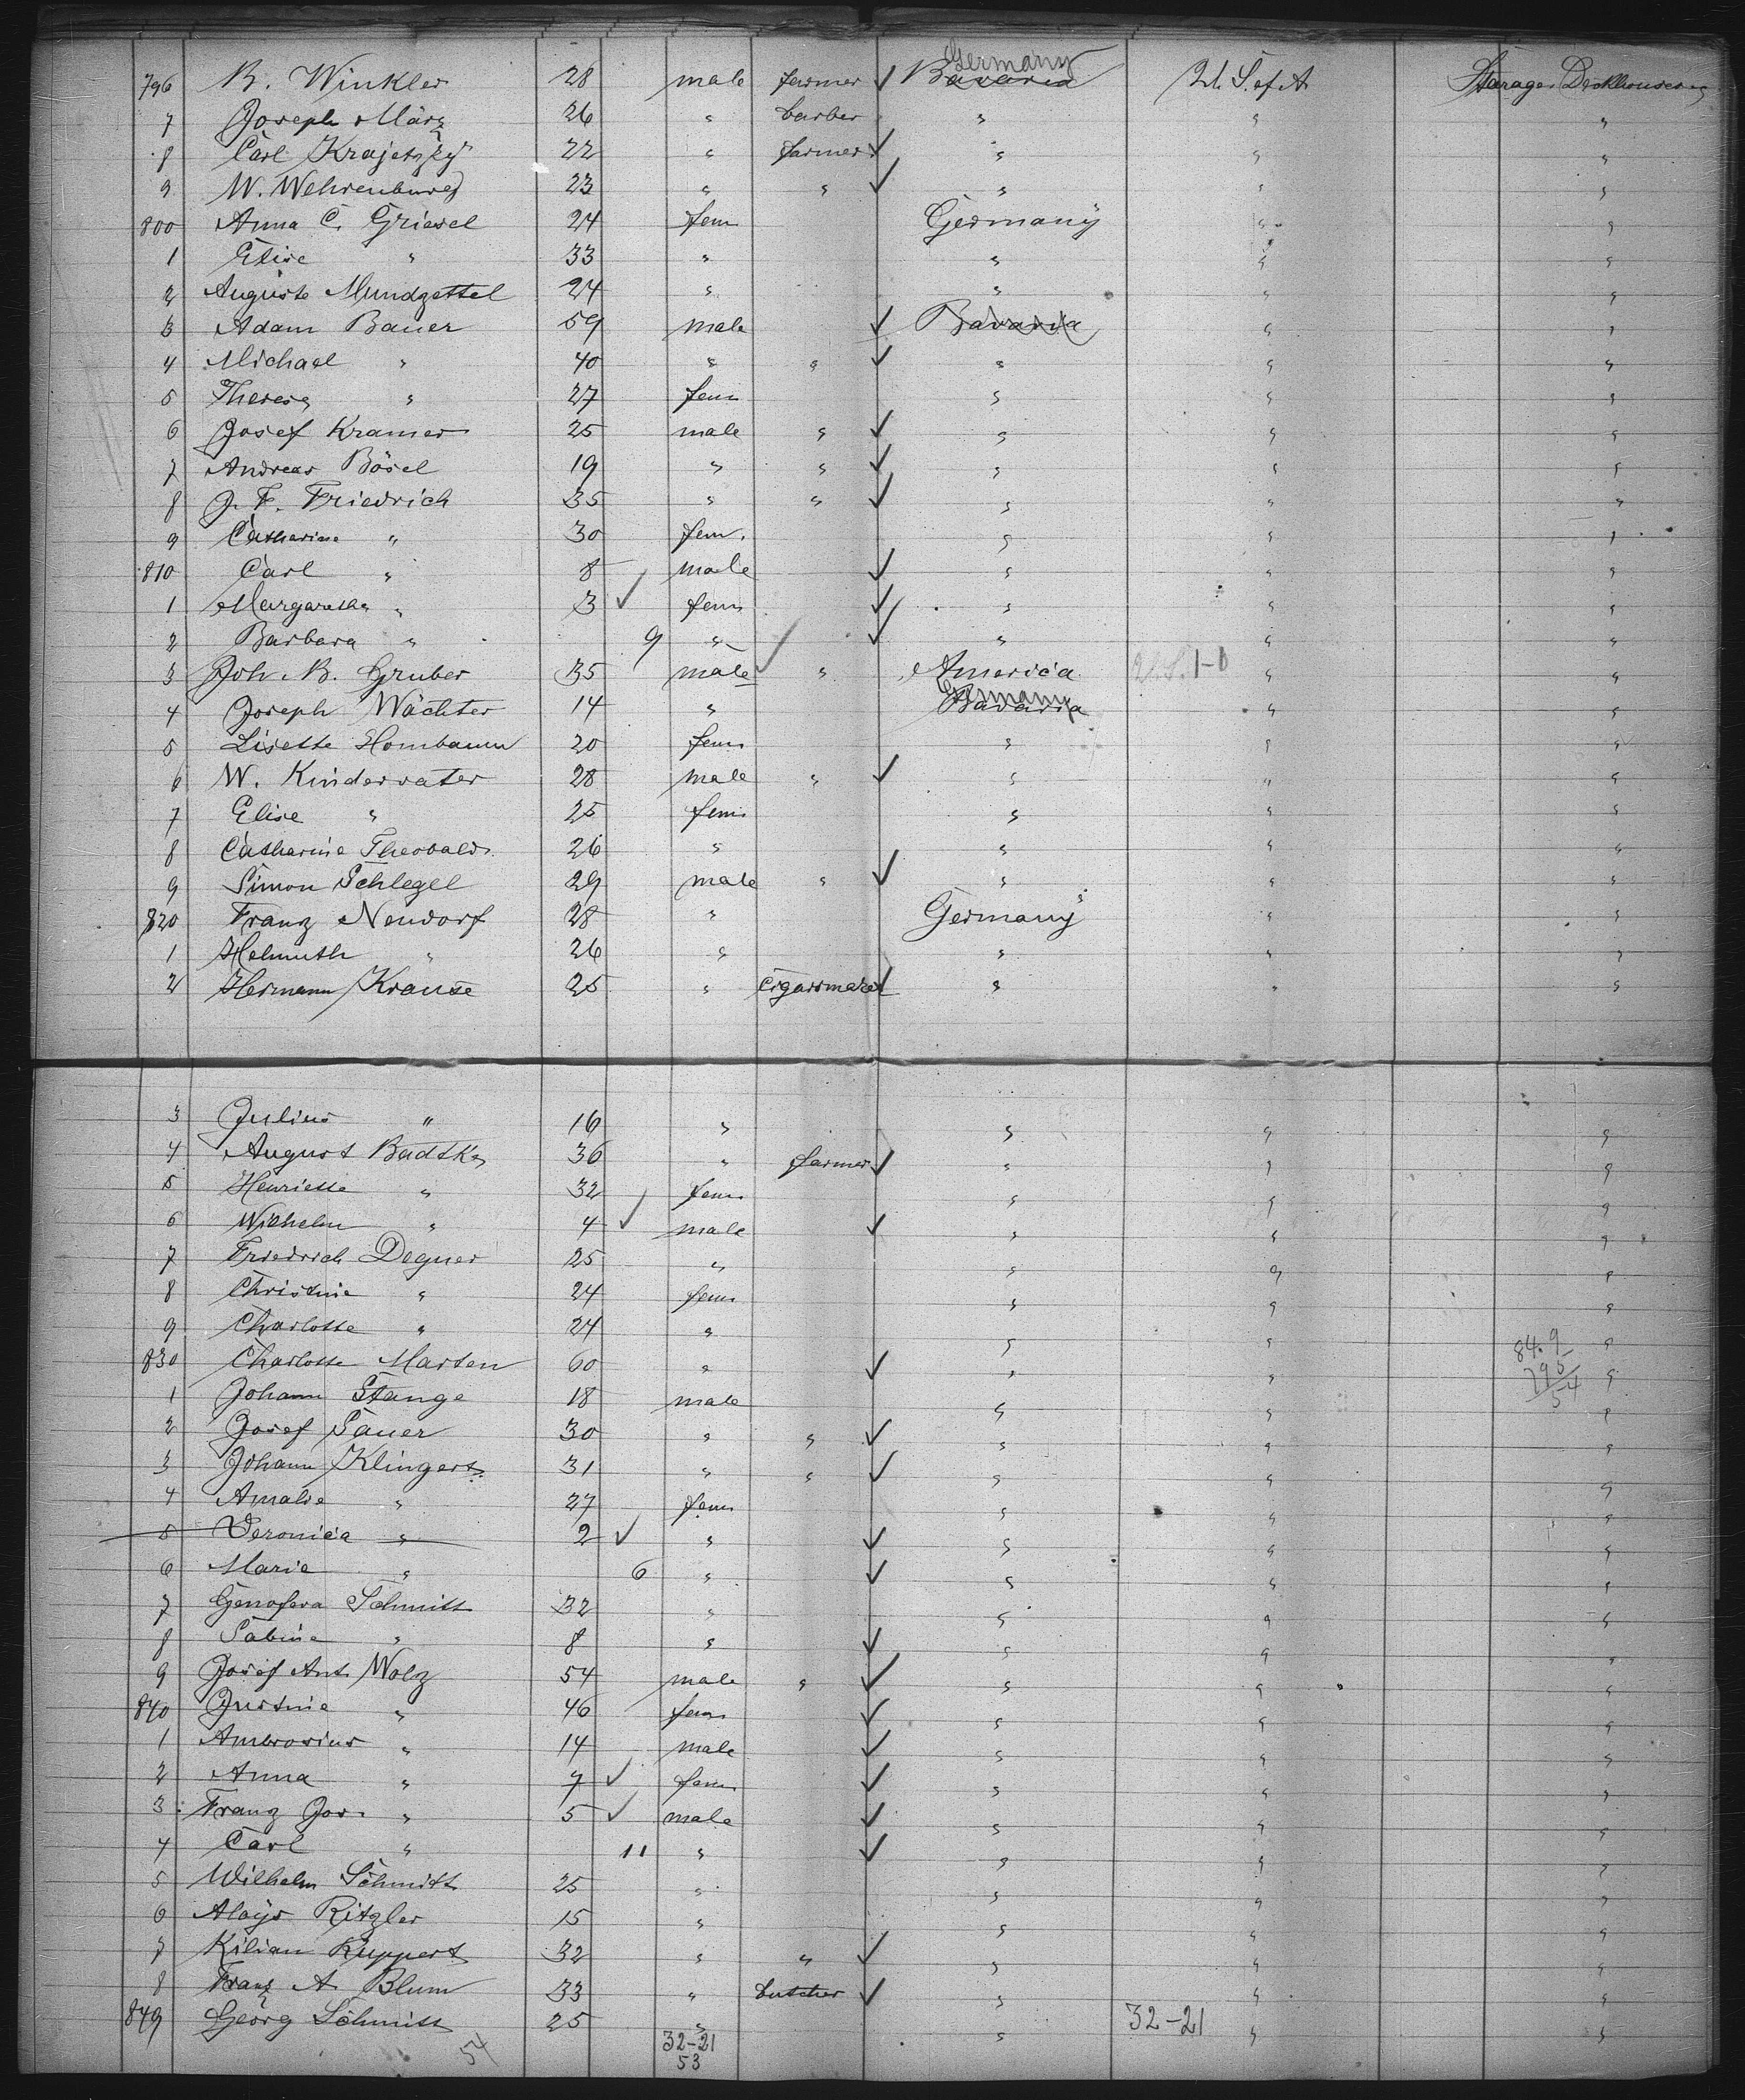 Germany
796 B. Winkler 28 male farmer ✓ Bavaria U. S. of A Steerage Deckhouse
7 Joseph März 26 " barber " " "
8 Carl Krajetzky 22 " farmer ✓ " " "
9 W. Wehrenburg 23 " " ✓ " " "
800 Anna C. Griesel 24 fem Germany " "
1 Elise " 33 " " " "
2 Auguste Mundzettel 24 " " " "
3 Adam Bauer 59 male ✓ Bavaria " "
4 Michael " 40 " " ✓ " " "
5 Therese " 27 fem " " "
6 Josef Kramer 25 male " ✓ " " "
7 Andreas Bösel 19 " " ✓ " " "
8 J. F. Friedrich 35 " " ✓ " " "
9 Catharine " 30 fem. " " "
810 Carl " 8 male ✓ " " "
1 Margaretha " 3 ✓ fem ✓ " " "
2 Barbara " 9 " ✓ " " "
3 Joh. B. Gruber 35 male ✓ " America U.S. 1-0 " "
Germany
4 Joseph Wächter 14 " Bavaria " "
5 Lisette Hornbaum 20 fem " " "
6 W. Kindervater 28 male " ✓ " " "
7 Elise " 25 fem " " "
8 Catharine Theobald 26 " " " "
9 Simon Schlegel 29 male " ✓ " " "
820 Franz Neudorf 28 " Germany " "
1 Helmuth " 26 " " " "
2 Hermann Krause 25 " Cigarrmaker ✓ " " "
3 Julius " 16 " " " "
4 August Badtke 36 " farmer ✓ " " "
5 Henriette " 32 fem " " "
6 Wilhelm " 4 ✓ male ✓ " " "
7 Friedrich Degner 25 " " " "
8 Christine " 24 fem " " "
9 Charlotte " 24 " " " "
830 Charlotte Marten 60 " ✓ " " "
849
796
54
1 Johann Stange 18 male " " "
2 Josef Sauer 30 " " ✓ " " "
3 Johann Klingert 31 " " ✓ " " "
4 Amalie " 27 fem " " "
5 Veronica " 2 ✓ " ✓ " " "
6 Marie " 6 " ✓ " " "
7 Genofeva Schmitt 32 " " " "
8 Sabine " 8 " ✓ " " "
9 Josef Ant. Wolz 54 male " ✓ " " "
840 Justine " 46 fem ✓ " " "
1 Ambrosius " 14 male ✓ " " "
2 Anna " 7 ✓ fem ✓ " " "
3 Franz Jos. " 5 ✓ male ✓ " " "
4 Carl " 11 " ✓ " " "
5 Wilhelm Schmitt 25 " " " "
6 Aloys Ritzler 15 " " " "
7 Kilian Ruppert 32 " " ✓ " " "
8 Franz A. Blum 33 " butcher ✓ " " "
849 Georg Schmitt 25 " " 32-21 " "
54 32-21
53